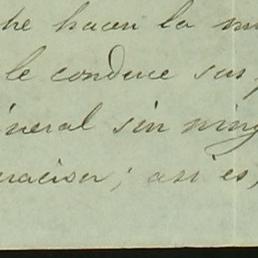 che hacen la
le conduce sus
ineral sin ning
racion; asi es,